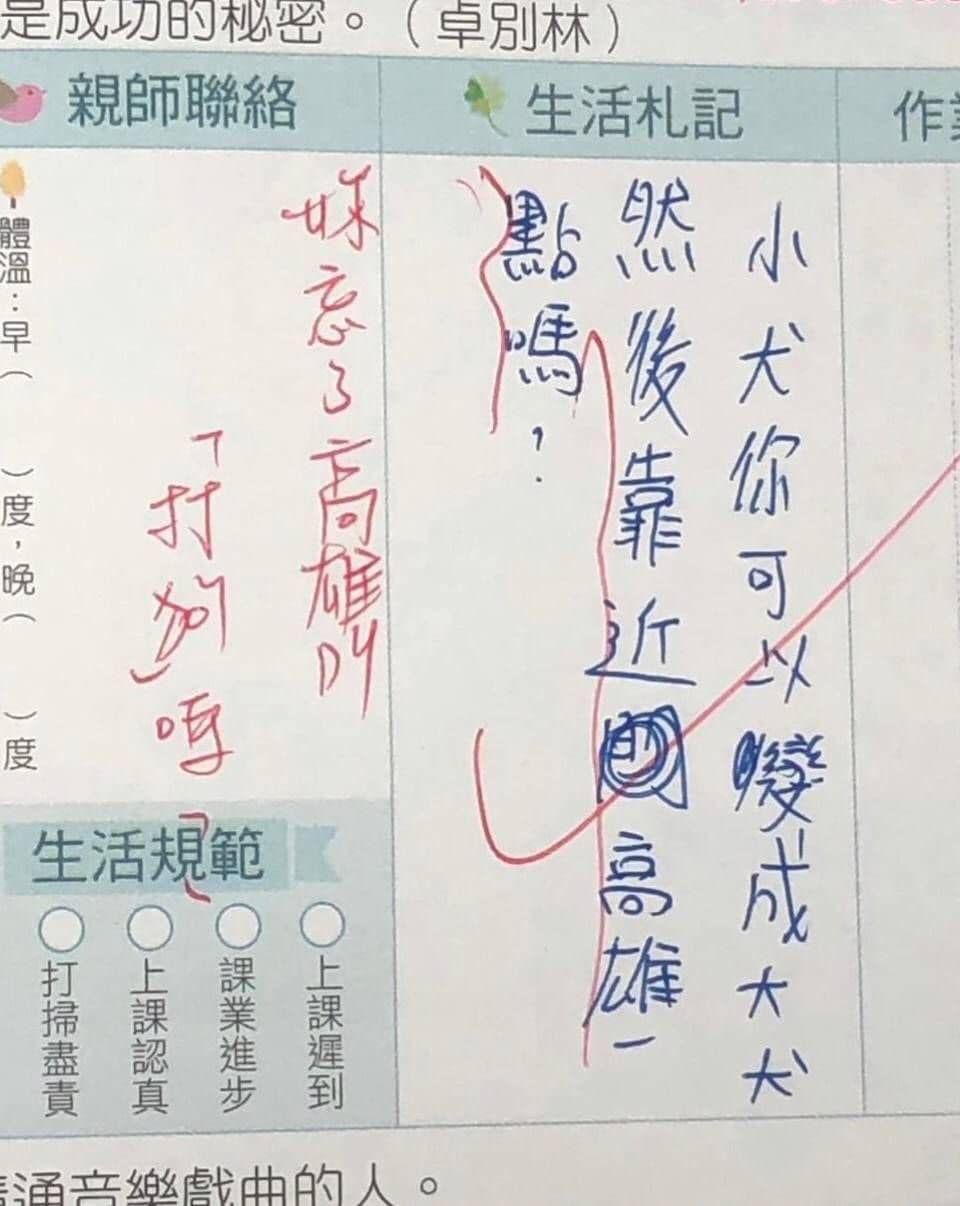 是成功的秘密。（卓別林）
親師聯絡
生活札記
作業
小犬你可以變成大犬
然後靠近高雄一
點嗎？
妹忘了高雄的
「打狗」嗎
體溫：早（　）度，晚（　）度
生活規範
上課遲到
課業進步
上課認真
打掃盡責
通音樂戲曲的人。